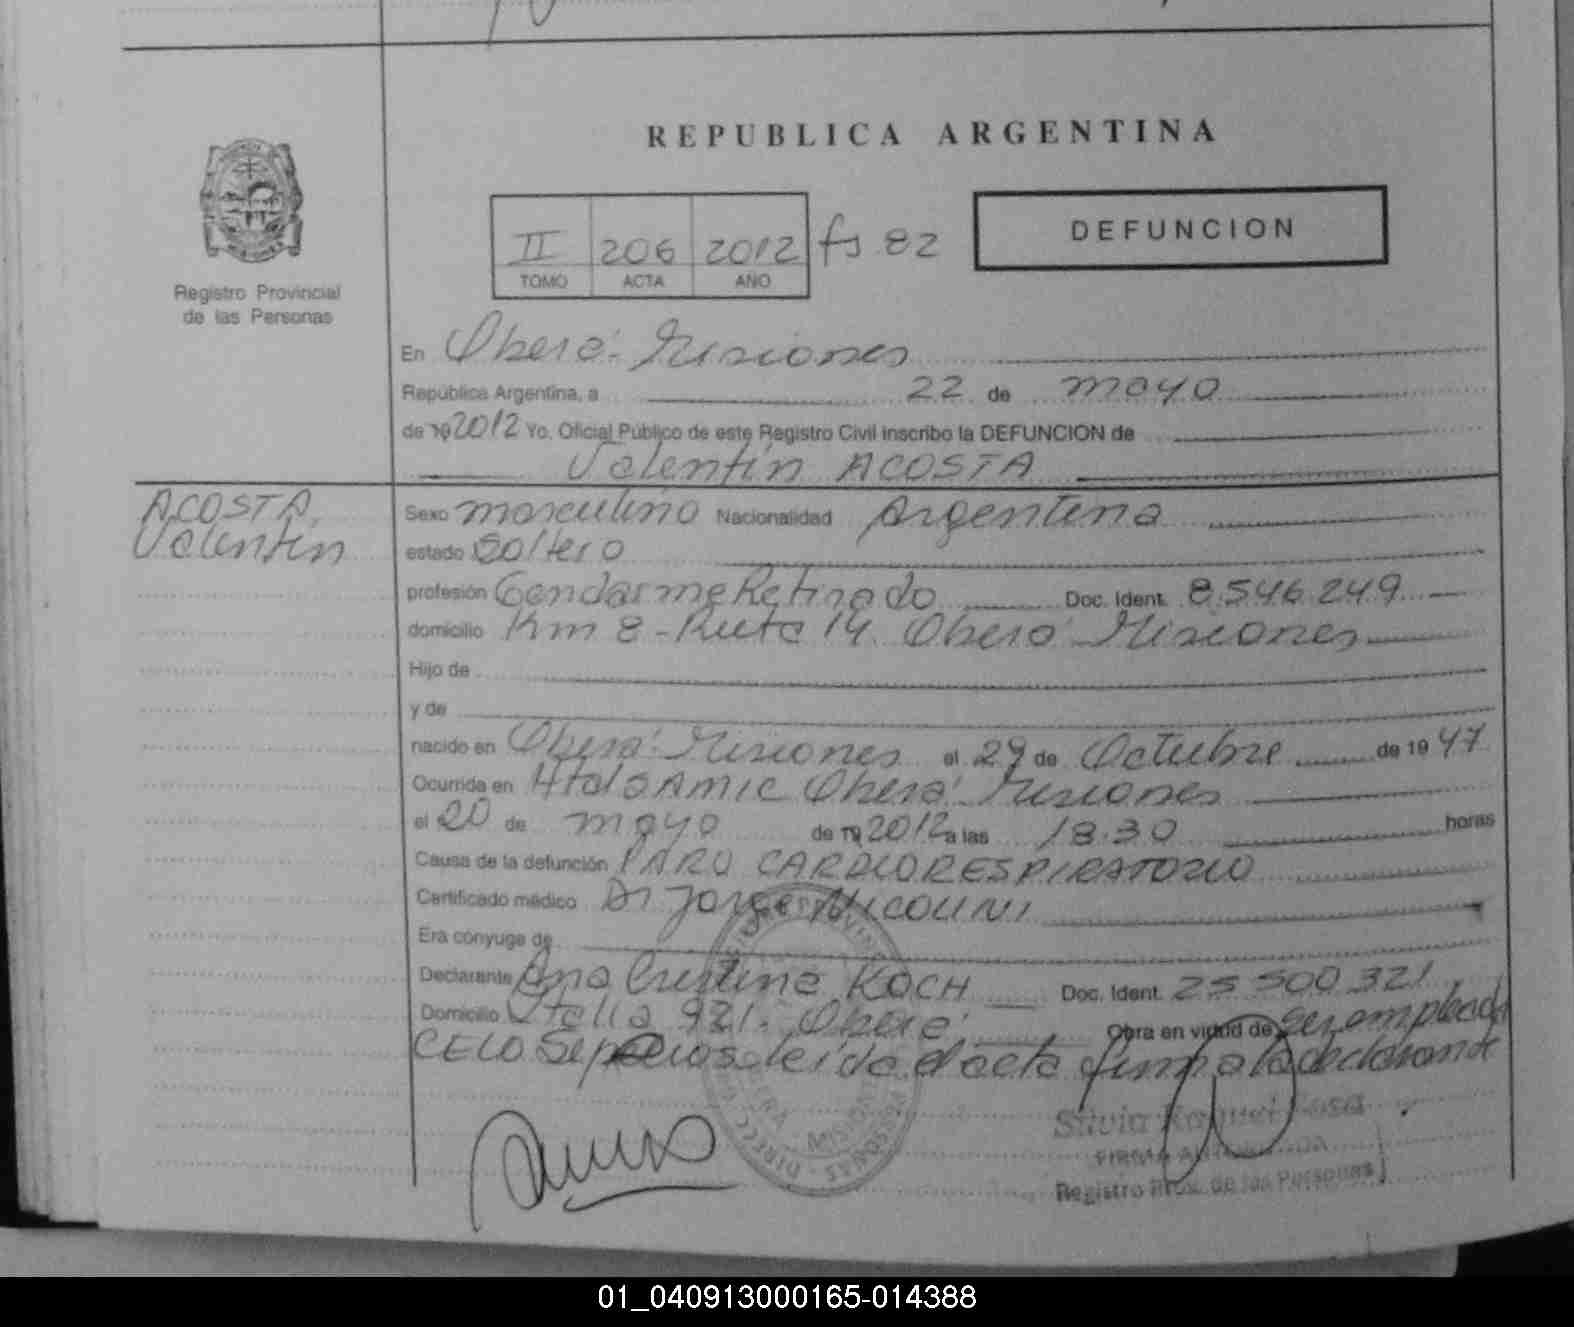 REPUBLICA ARGENTINA
Registro Provincial
de las Personas
II 206 2012 fs 82
TOMO ACTA AÑO
DEFUNCION
En Oberá - Misiones
República Argentina, a 22 de mayo
de 19 2012 Yo, Oficial Público de este Registro Civil inscribo la DEFUNCION de
Valentín ACOSTA
ACOSTA,
Valentín
Sexo masculino Nacionalidad Argentina
estado Soltero
profesión Gendarme Retirado Doc. Ident. 8.546.249
domicilio Km 8 - Ruta 14. Oberá Misiones
Hijo de
y de
nacido en Oberá - Misiones el 29 de Octubre de 19 47
Ocurrida en Htal SAMIC Oberá - Misiones
el 20 de mayo de 19 2012 a las 18.30 horas
Causa de la defunción PARO CARDIORESPIRATORIO
Certificado médico Dr Jorge NICOLINI
Era conyuge de
Declarante Ana Cristina KOCH Doc. Ident. 25 500 321
Domicilio Italia 921 - Oberá Obra en virtud de ser empleada
CELO Sepelios leída el acta firma la declarante
Silvia Raquel Sosa
FIRMA AUTORIZADA
Registro Prov. de las Personas
01_040913000165-014388